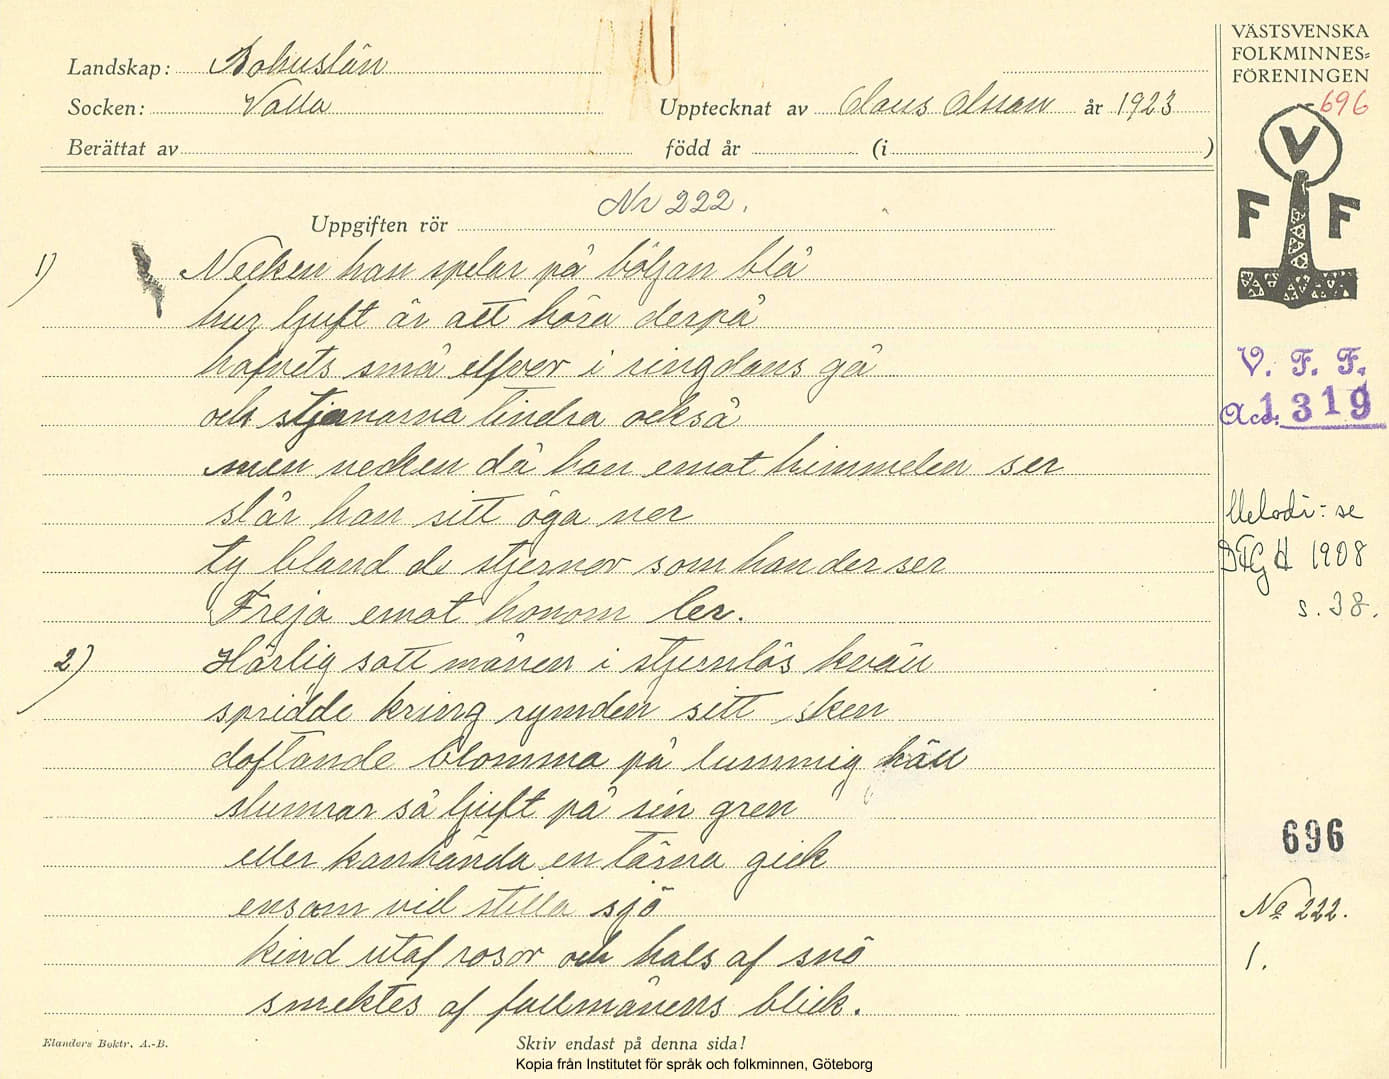 Landskap: Bohuslän
Socken: Valla
Upptecknat av Claus Olsson år 1923
Berättat av
född år (i )
Uppgiften rör Nr 222.
1) Necken han spelar på böljan blå
hur ljuft är att höra derpå
hafvets små elfver i ringdans gå
och stjernorna tindra också
men necken då han emot himmelen ser
slår han sitt öga ner
ty bland de stjernor som han der ser
Freja emot honom ler.
2) Härlig satt månen i stjernlös kväll
spridde kring rymden sitt sken
doftande blomma på lummig häll
slumrar så ljuft på sin gren
eller kanhända en tärna gick
ensam vid stilla sjö
kind utaf rosor och hals af snö
smektes af fullmånens blick.
Elanders Boktr. A.-B.
Skriv endast på denna sida!
Kopia från Institutet för språk och folkminnen, Göteborg
VÄSTSVENSKA
FOLKMINNES-
FÖRENINGEN
696
V
F F
V. F. F.
Acc. 1319
Melodi: se
1908
s. 38.
696
No 222.
1.